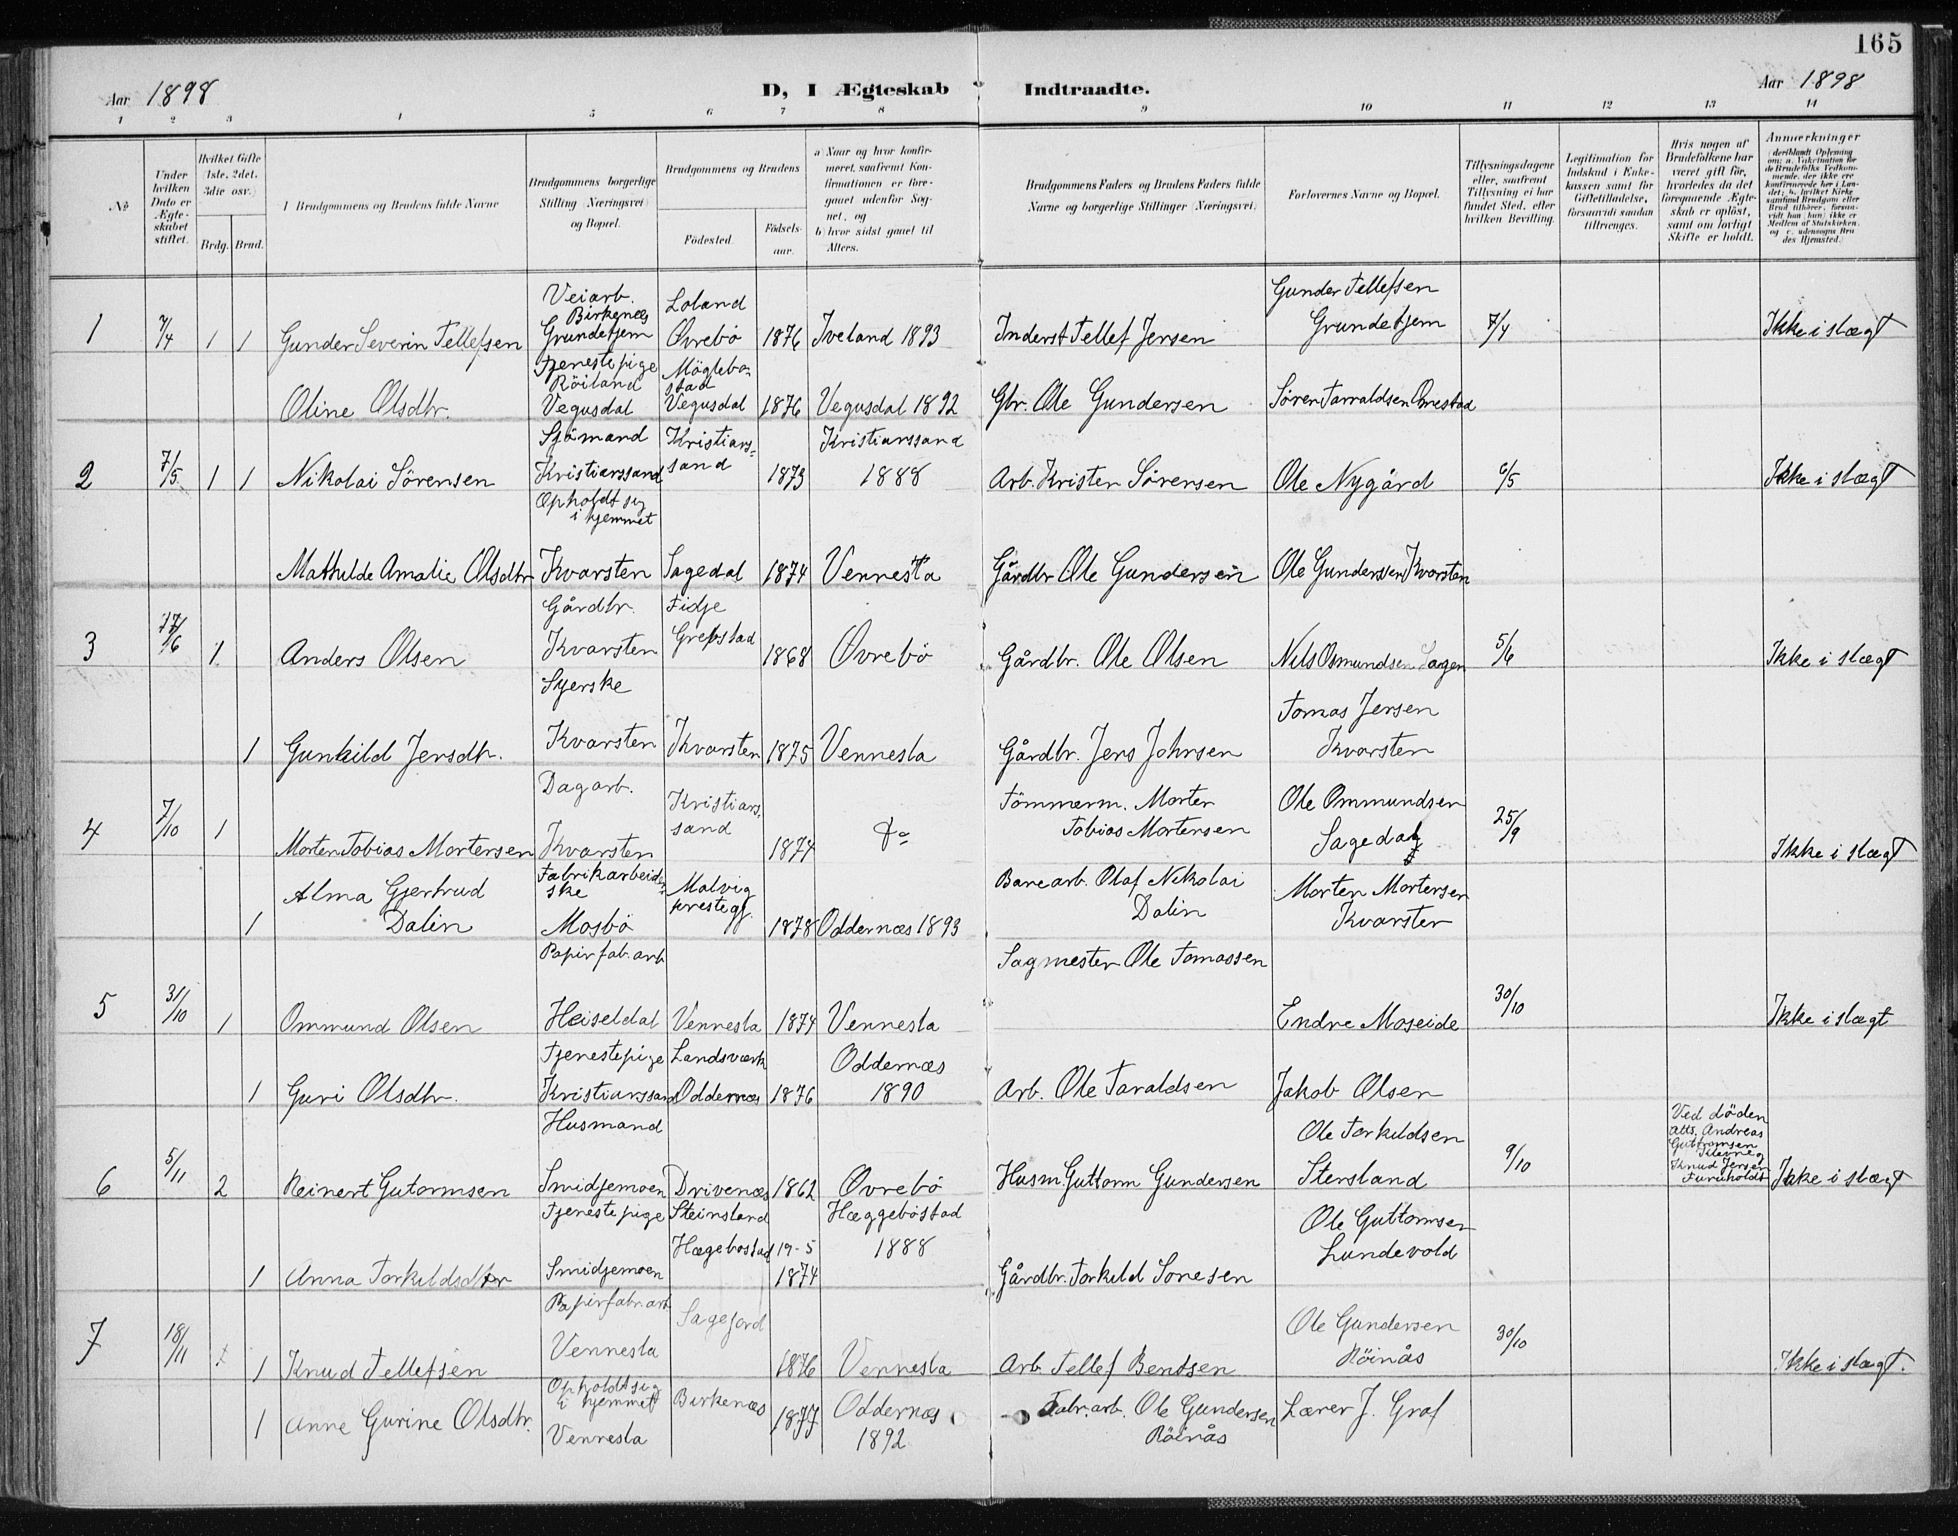 165
Aar 1898
D, I Ægteskab Indtraadte.
Aar 1898
1 2 3 4 5 6 7 8 9 10 11 12 13 14
No
Under hvilken Dato er Ægteskabet stiftet.
Hvilket Gifte (1ste, 2det, 3die osv.)
Brdg. Brud.
Brudgommens og Brudens fulde Navne
Brudgommens borgerlige Stilling (Næringsvei) og Bopæl.
Brudgommens og Brudens
Fødested. Fødsels-aar.
a) Naar og hvor konfirmeret, saafremt Konfirmationen er foregaaet udenfor Sognet, og
b) hvor sidst gaaet til Alters.
Brudgommens Faders og Brudens Faders fulde Navne og borgerlige Stillinger (Næringsvei).
Forlovernes Navne og Bopæl.
Tillysningsdagene eller, saafremt Tillysning ei har fundet Sted, efter hvilken Bevilling.
Legitimation for Indskud i Enkekassen samt for Giftetilladelse, forsaavidt saadan tiltrænges.
Hvis nogen af Brudefolkene har været gift før, hvorledes da det foregaaende Ægteskab er opløst, samt om lovligt Skifte er holdt.
Anmærkninger
1 7/4 1 1 Gunder Severin Tellefsen
Veiarb. Birkenæs Grundetjern
Loland Øvrebø 1876 Iveland 1893
Inderst Tellef Jensen
Gunder Tellefsen Grundetjern
7/4 Ikke i slægt
Oline Olsdtr.
Tjenestepige Röiland Vegusdal
Möglebostad Vegusdal 1876 Vegusdal 1892
Gbr. Ole Gundersen
Sören Tarraldsen Ønestad
2 7/5 1 1 Nikolai Sörensen
Sjömand Kristianssand
Kristianssand 1873 Kristianssand 1888
Arb. Kristen Sörensen
Ole Nygård
6/5 Ikke i slægt
Mathilde Amalie Olsdtr
Opholdt sig i hjemmet Kvarsten
Sagedal 1874 Vennesla
Gårdbr Ole Gundersen
Ole Gundersen Kvarsten
3 17/6 1 Anders Olsen
Gårdbr. Kvarsten
Fidje Grepstad 1868 Øvrebö
Gårdbr. Ole Olsen
Nils Osmundsen Sagen
5/6 Ikke i slægt
1 Gunhild Jensdtr.
Syerske Kvarsten
Kvarsten 1875 Vennesla
Gårdbr. Jens Johnsen
Tomas Jensen Kvarsten
4 7/10 1 Morten Tobias Mortensen
Dagarb. Kvarsten
Kristianssand 1874 Do
Tömmerm. Morten Tobias Mortensen
Ole Ommundsen Sagedal
25/9 Ikke i slægt
1 Alma Gjertrud Dalin
Fabrikarbeiderske Mosbö
Malvig prestegj. 1878 Oddernæs 1893
Banearb. Olaf Nikolai Dalin
Morten Mortensen Kvarsten
5 31/10 1 Ommund Olsen
Papirfab.arb Heiseldal
Vennesla 1874 Vennesla
Sagmester Ole Tomassen
Endre Moseide
30/10 Ikke i slægt
1 Guri Olsdtr.
Tjenestepige Kristianssand
Landsværk Oddernæs 1876 Oddernæs 1890
Arb. Ole Taraldsen
Jakob Olsen
6 5/11 2 Reinert Gutormsen
Husmand Smidjemoen
Drivenæs 1862 Øvrebö
Husm. Guttorm Gundersen
Ole Torkildsen Stersland
9/10
Ved döden
Atts. Andreas Guttormsen
Knud Jensen Furuholdt
Ikke i slægt
1 Anna Torkildsdtr
Tjenestepige Smidjemoen
Steinsland Hægebostad 19-5 1874
Hæggeböstad 1888
Gårdbr. Torkild Sonesen
Ole Guttormsen Lundevold
7 18/11 1 Knud Tellefsen
Papirfabr.arb Vennesla
Sagejord 1876 Vennesla
Arb Tellef Bentsen
Ole Gundersen Röinås
30/10 Ikke i slægt.
1 Anne Gurine Olsdtr.
Opholdt sig i hjemmet Vennesla
Birkenæs 1877 Oddernæs 1892
Fabr.arb. Ole Gundersen Röinås
Lærer J. Graf